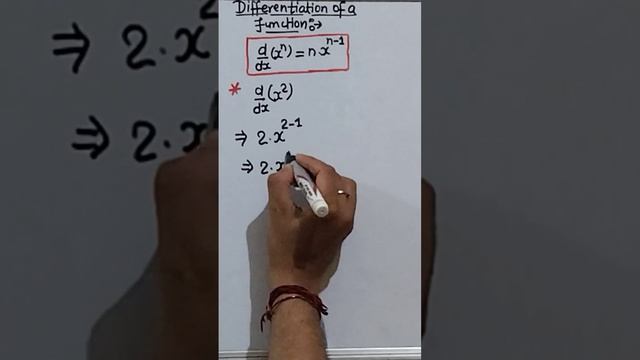 Differentiation of a
function:→
d/dx (xⁿ) = n·xⁿ⁻¹
* d/dx (x²)
⇒ 2·x²⁻¹
⇒ 2·x